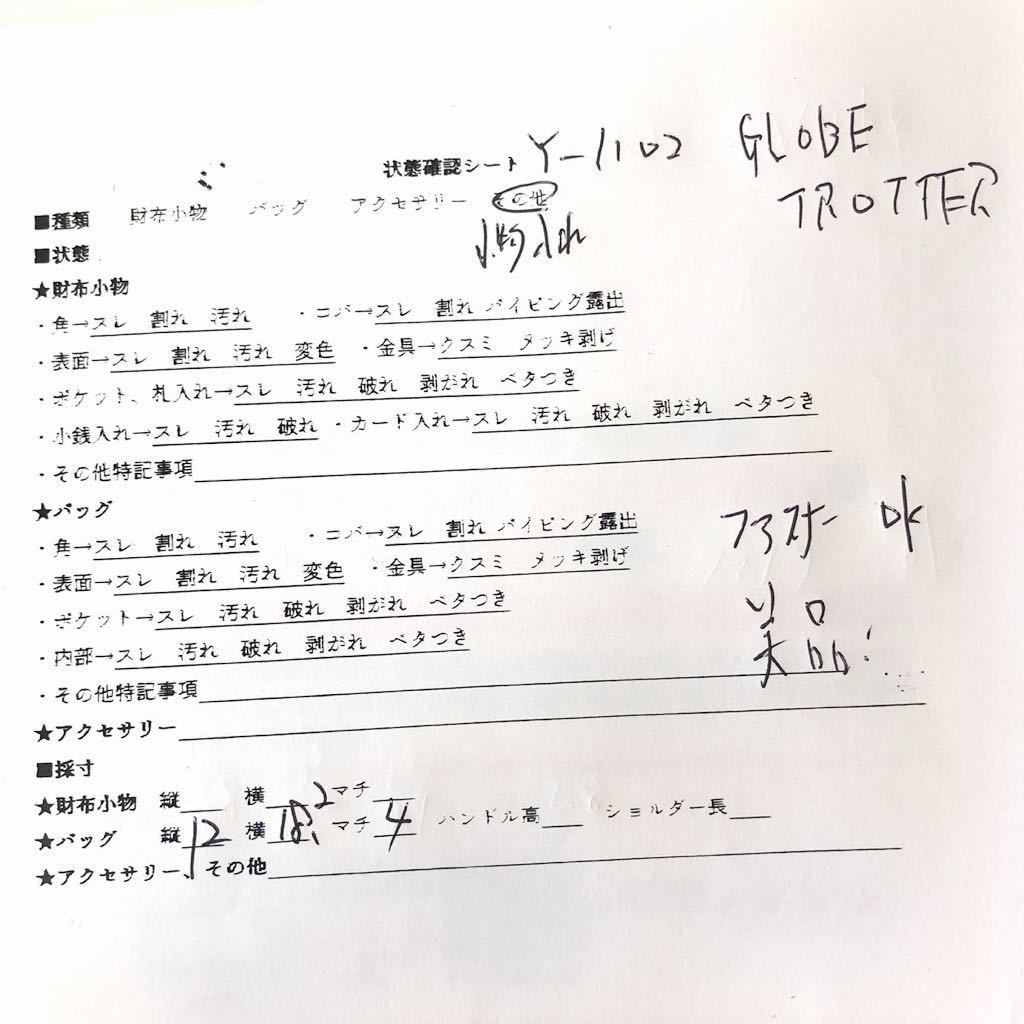 状態確認シート Y-1102 GLOBE
TROTTER
■種類 財布小物 バッグ アクセサリー その他
小物入れ
■状態
★財布小物
・角→スレ 割れ 汚れ ・コバ→スレ 割れ パイピング露出
・表面→スレ 割れ 汚れ 変色 ・金具→クスミ メッキ剥げ
・ポケット、札入れ→スレ 汚れ 破れ 剥がれ ベタつき
・小銭入れ→スレ 汚れ 破れ ・カード入れ→スレ 汚れ 破れ 剥がれ ベタつき
・その他特記事項
★バッグ
ファスナー OK
・角→スレ 割れ 汚れ ・コバ→スレ 割れ パイピング露出
・表面→スレ 割れ 汚れ 変色 ・金具→クスミ メッキ剥げ
・ポケット→スレ 汚れ 破れ 剥がれ ベタつき
美品!
・内部→スレ 汚れ 破れ 剥がれ ベタつき
・その他特記事項
★アクセサリー
■採寸
★財布小物 縦 横 マチ
★バッグ 縦 12 横 18.2 マチ 4 ハンドル高 ショルダー長
★アクセサリー、その他